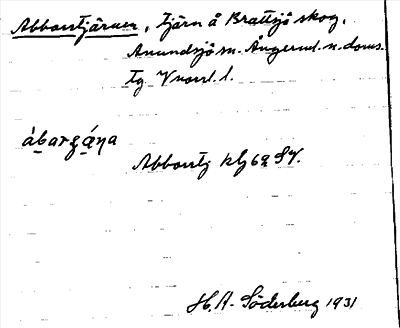 Abborrtjärnen, tjärn å Brattsjö skog,
Anundsjö sn. Ångerml. n. doms.
tg Vnorrl. l.
àbargána
Abborrtj klg 69 SV.
H. A. Söderberg 1931